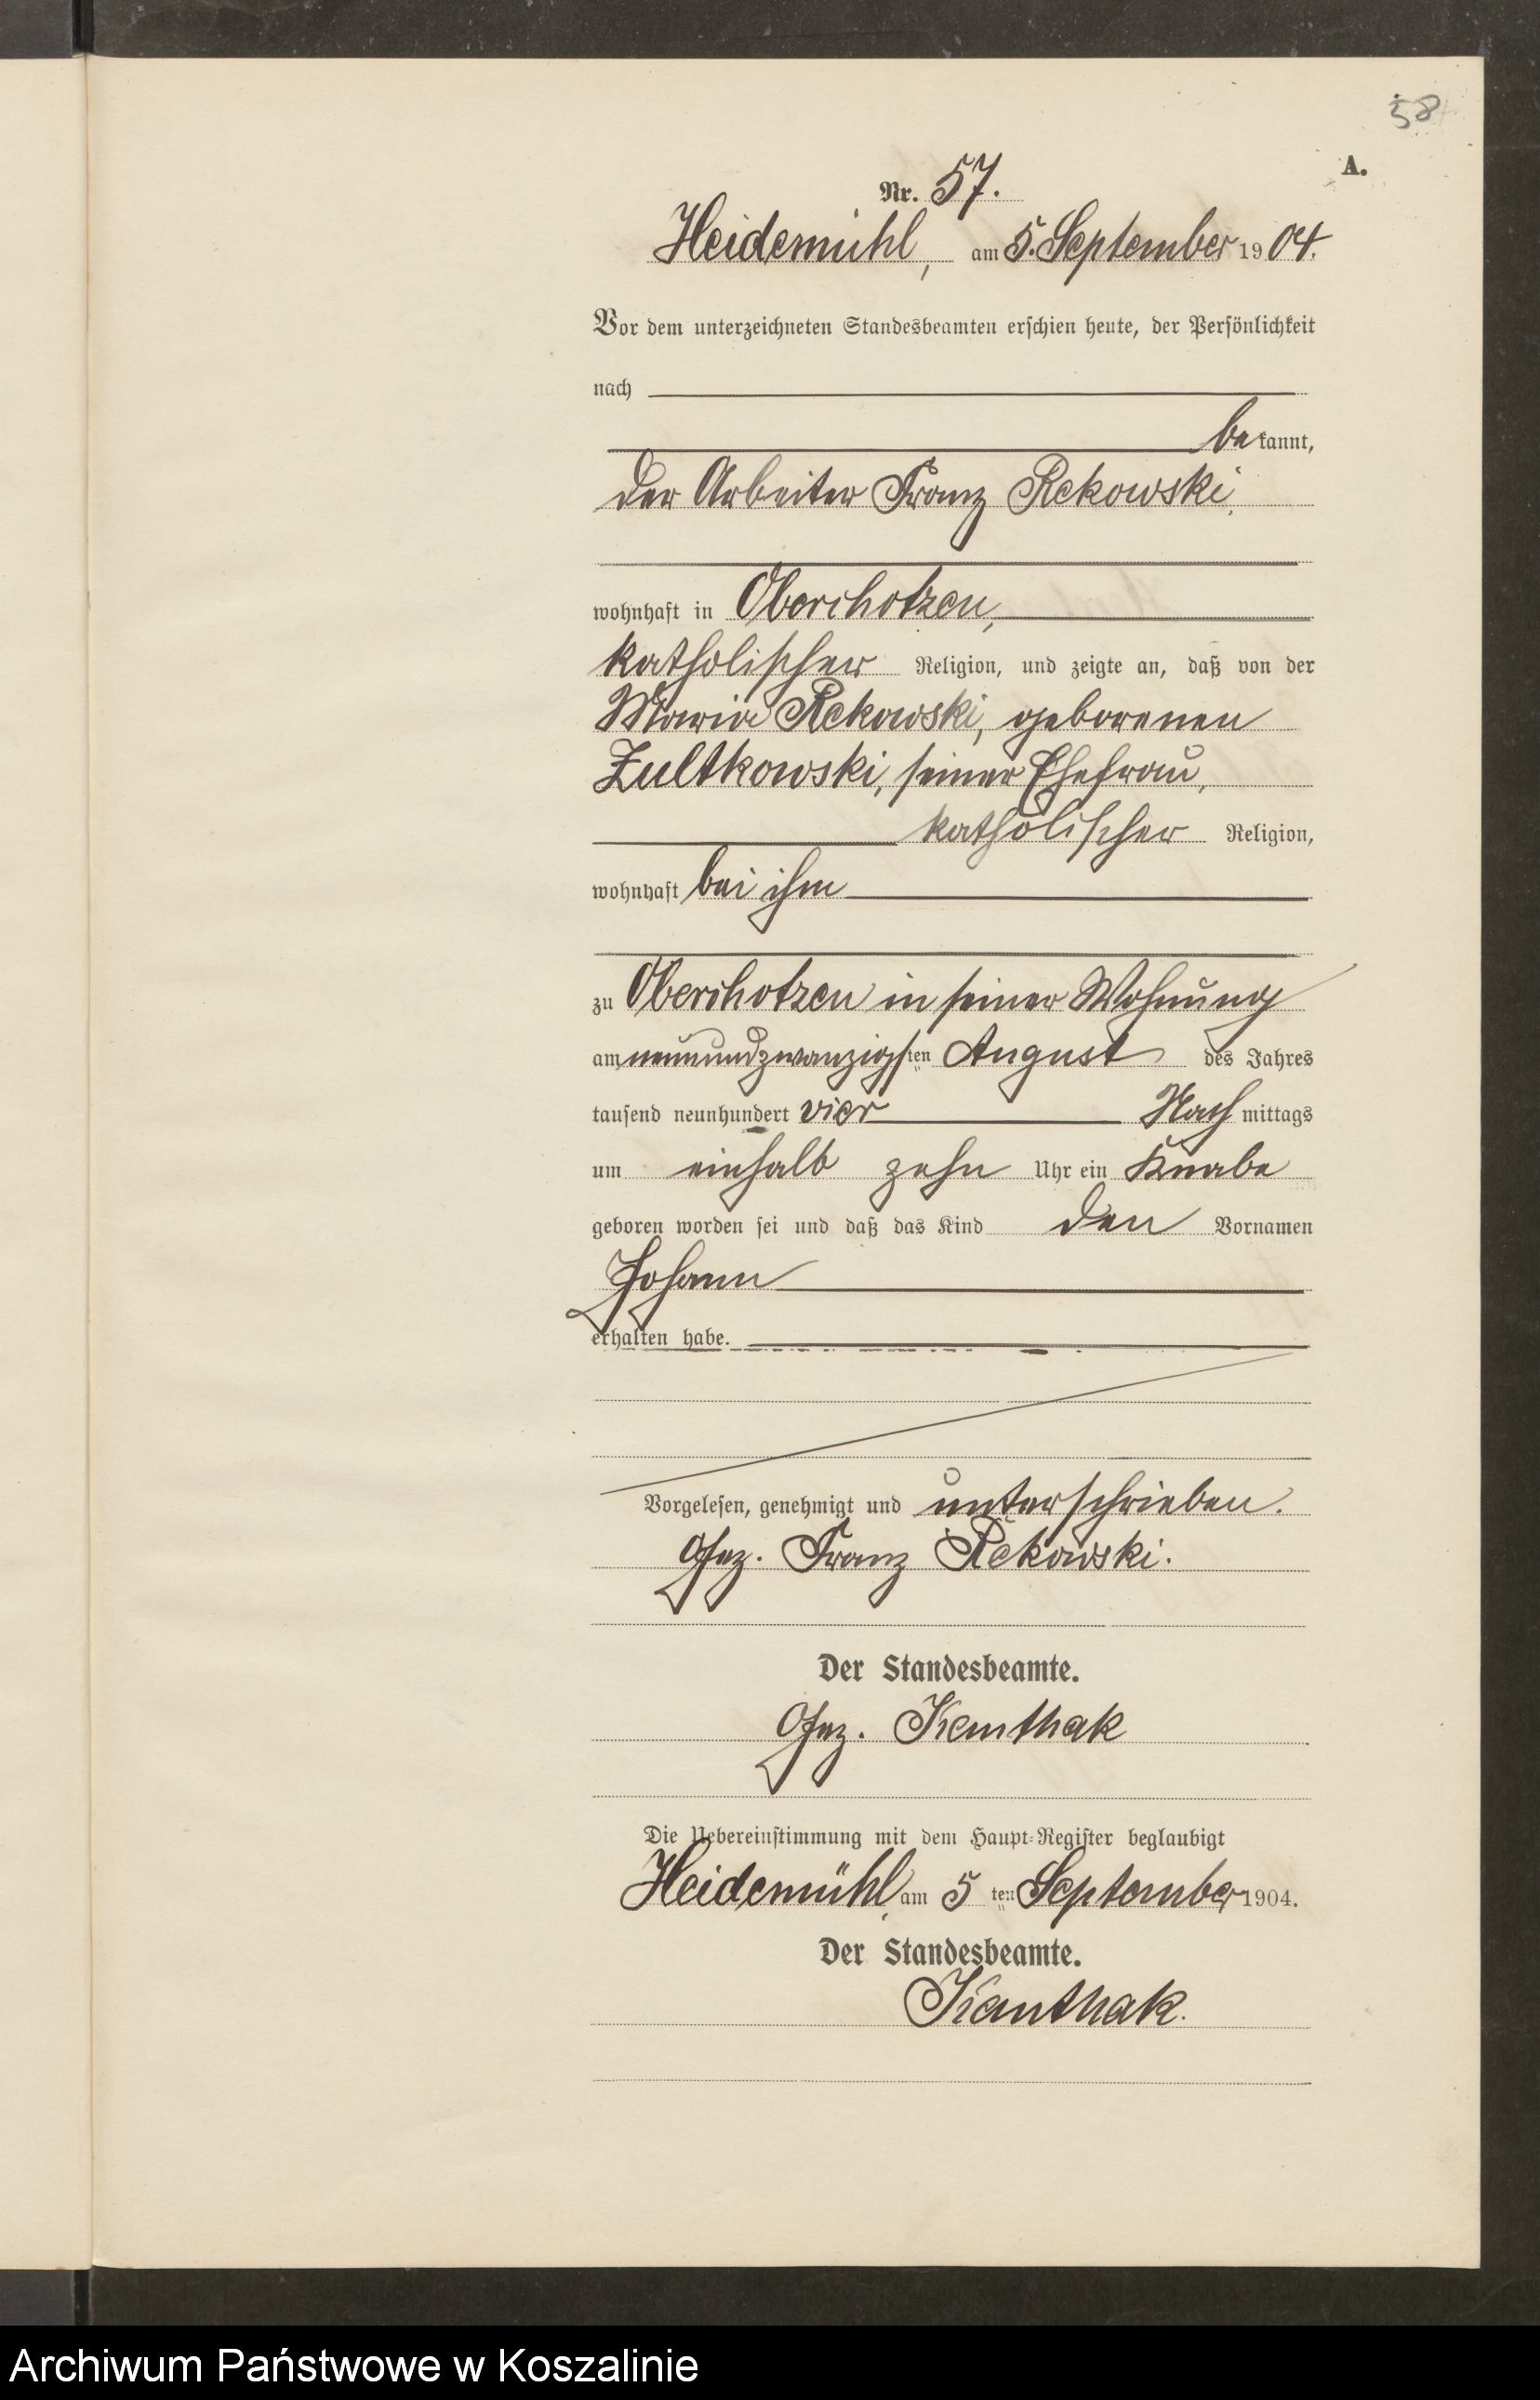 58
A.
Nr. 57.
Heidemühl, am 5. September 1904.
Vor dem unterzeichneten Standesbeamten erschien heute, der Persönlichkeit
nach
bekannt,
der Arbeiter Franz Rekowski,
wohnhaft in Oberchotzen,
katholischer Religion, und zeigte an, daß von der
Maria Rekowski, geborenen
Zultkowski, seiner Ehefrau,
katholischer Religion,
wohnhaft bei ihm
zu Oberchotzen in seiner Wohnung
am neunundzwanzigsten August des Jahres
tausend neunhundert vier Nachmittags
um einhalb zehn Uhr ein Knabe
geboren worden sei und daß das Kind den Vornamen
Johann
erhalten habe.
Vorgelesen, genehmigt und unterschrieben.
Gez. Franz Rekowski.
Der Standesbeamte.
Gez. Kanthak
Die Uebereinstimmung mit dem Haupt-Register beglaubigt
Heidemühl, am 5ten September 1904.
Der Standesbeamte.
Kanthak.
Archiwum Państwowe w Koszalinie